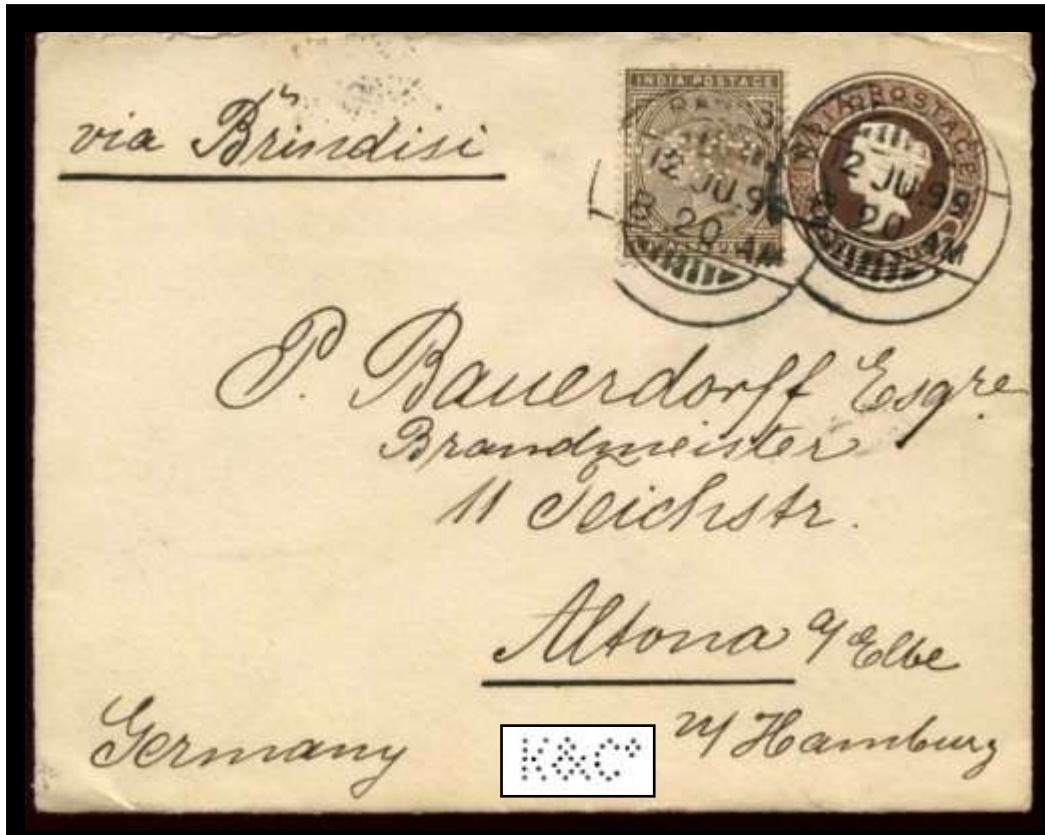 via Brindisi
INDIA POSTAGE
12 JU.9
8 20 AM
INDIA POSTAGE
2 JU.9
8 20 AM
P. Bauerdorff Esqre
Brandmeister
11 Teichstr.
Altona a/Elbe
n/Hamburg
Germany
K&Co